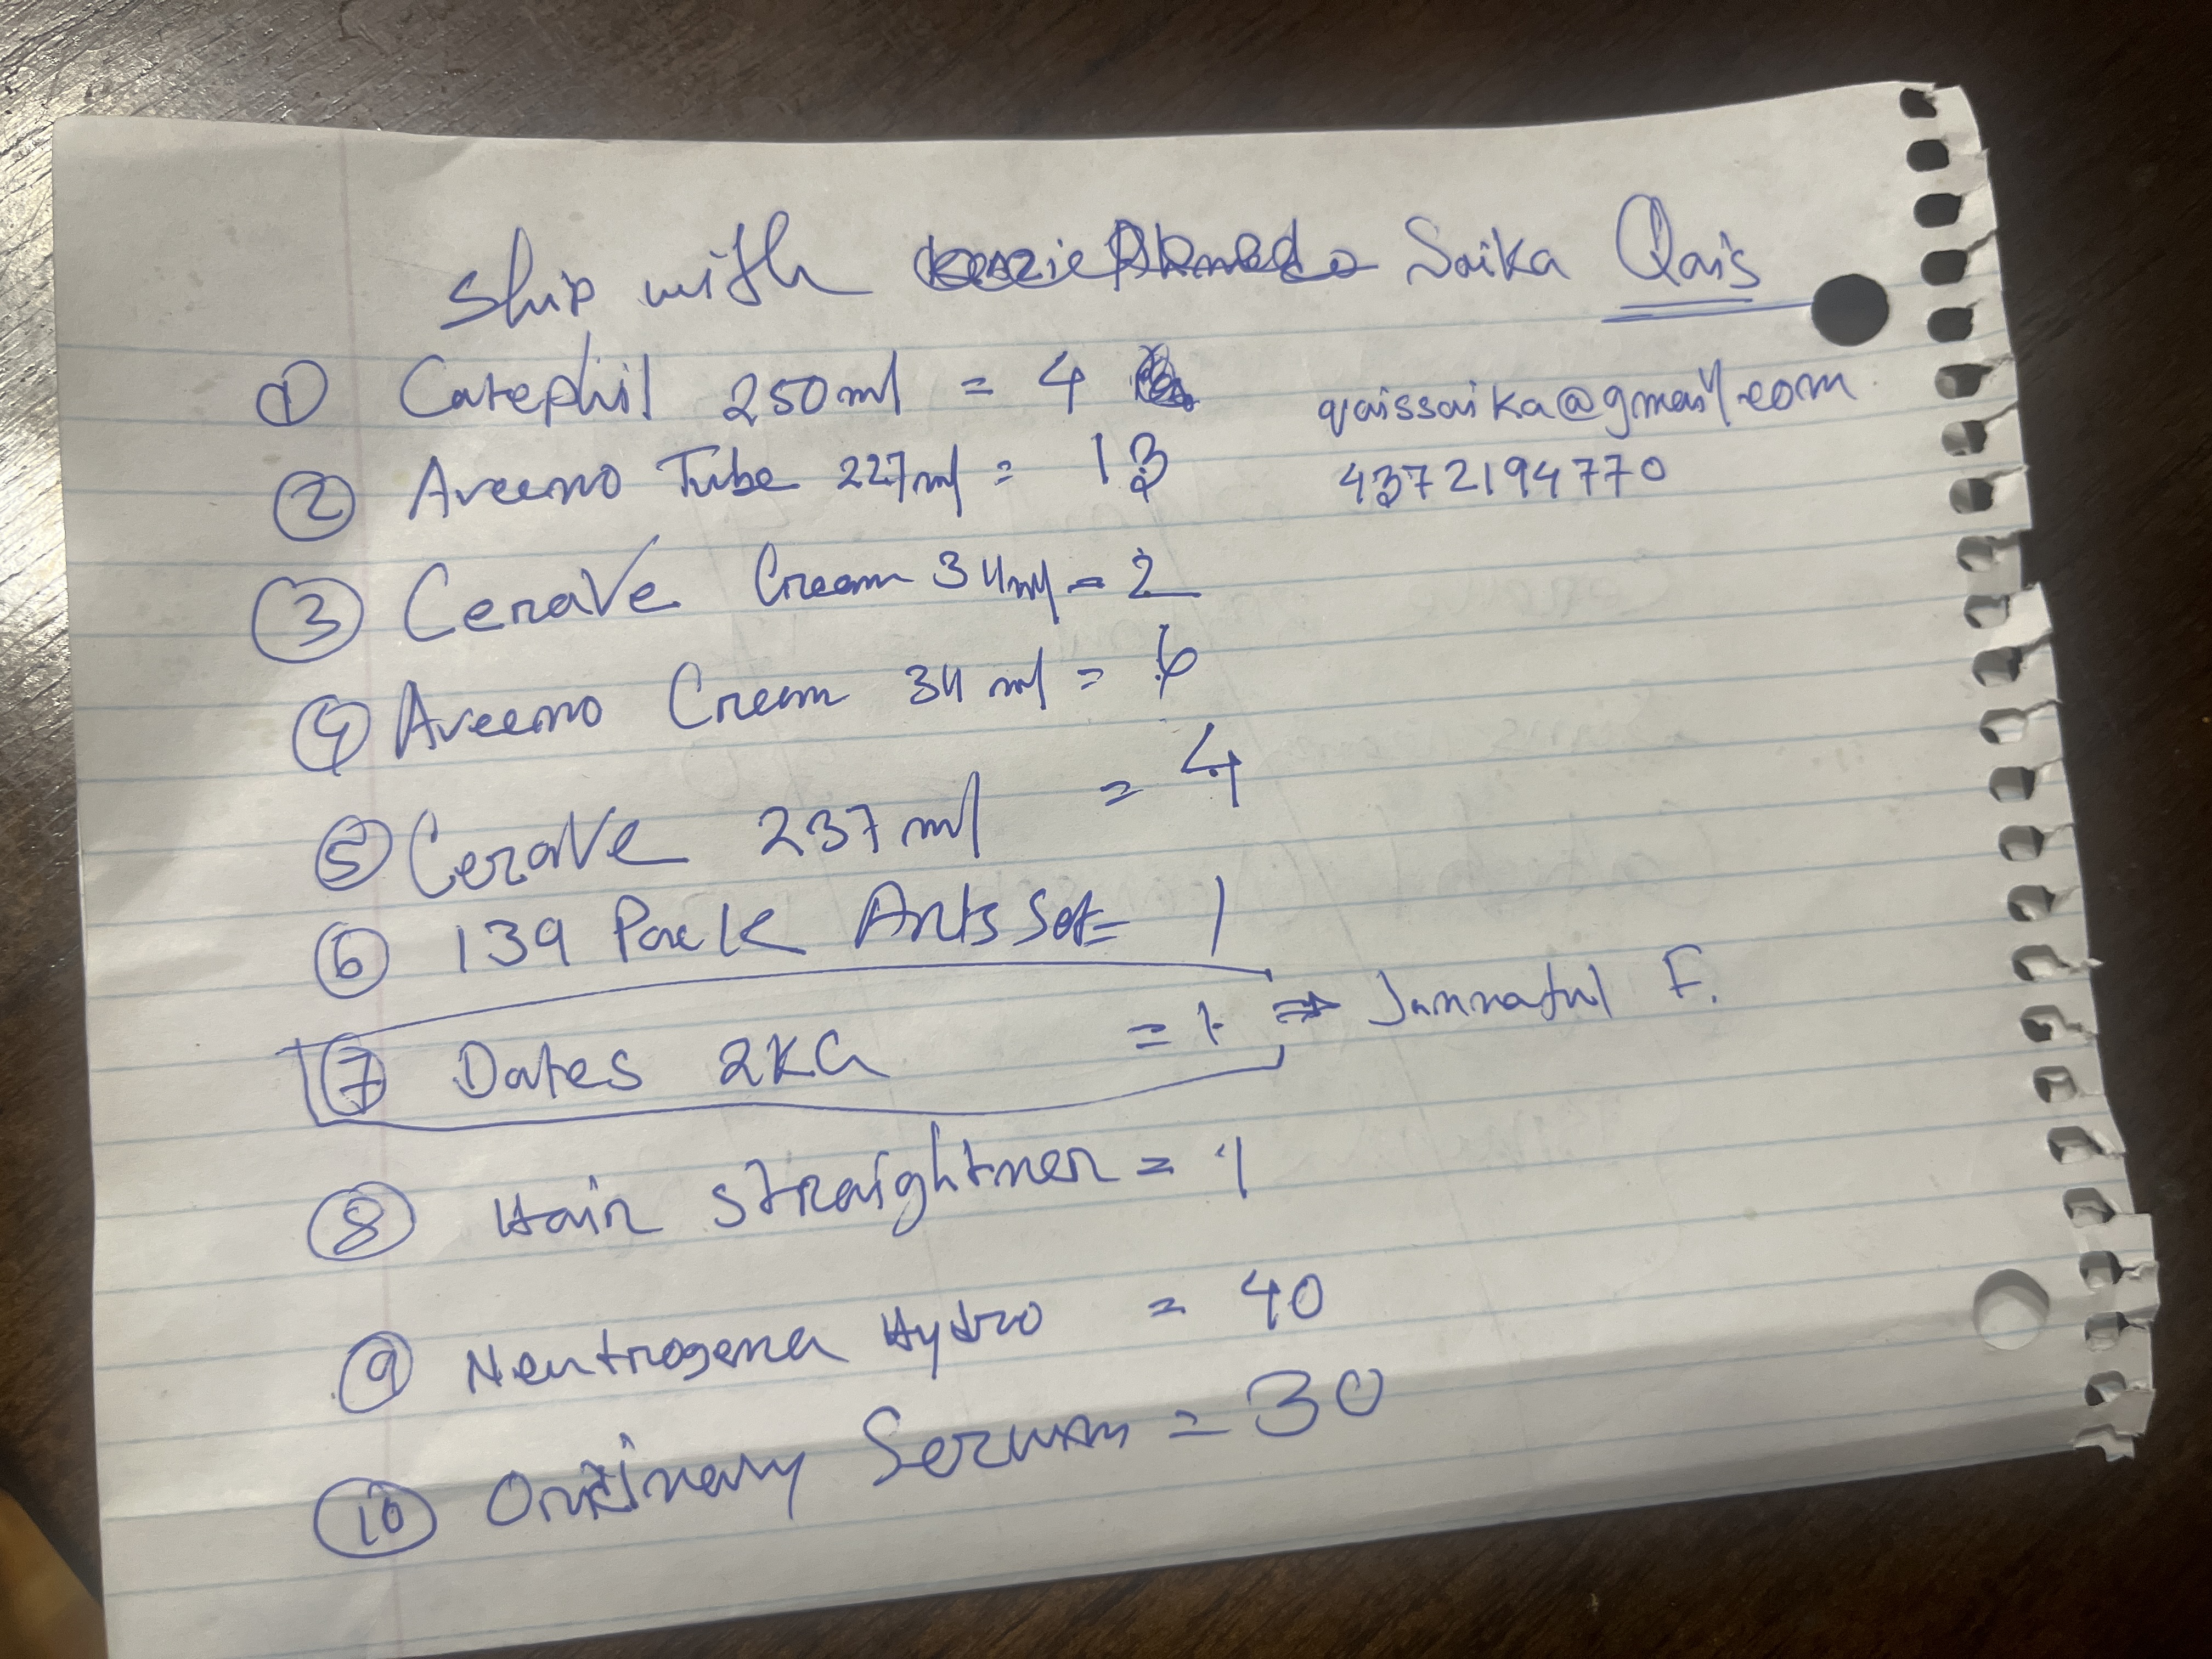 Ship with Saika Qais
① Catephil 250ml = 4
qaissaika@gmail.com
② Aveeno Tube 227ml = 13
4372194770
③ CeraVe Cream 34ml = 2
④ Aveeno Cream 34 ml = 6
⑤ CeraVe 237 ml = 4
⑥ 139 Pack Arts Set = 1
⑦ Dates 2KG = 1 ⇒ Jannatul F.
⑧ Hair straightner = 1
⑨ Neutrogena Hydro = 40
⑩ Ordinary Serum = 30